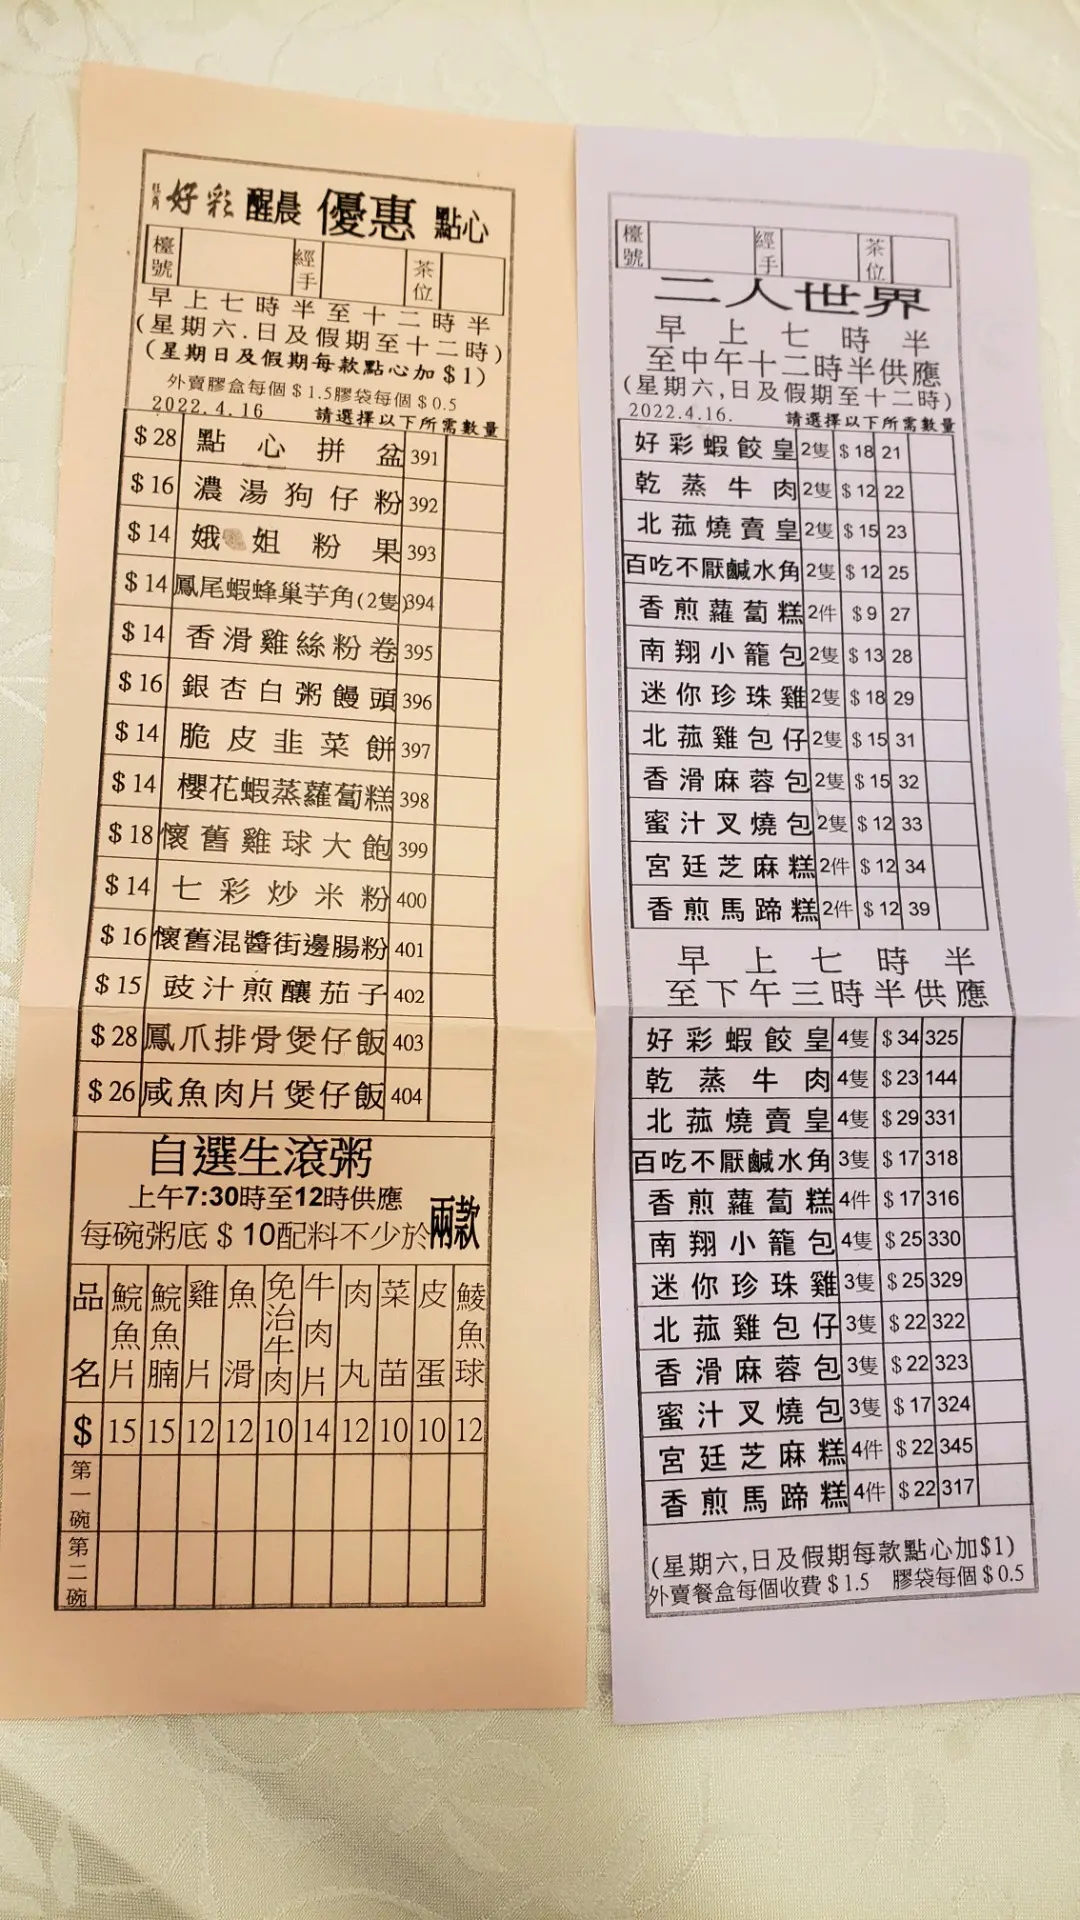 旺角 好彩 醒晨 優惠 點心
檯號 經手 茶位
早上七時半至十二時半
(星期六.日及假期至十二時)
(星期日及假期每款點心加$1)
外賣膠盒每個$1.5膠袋每個$0.5
2022.4.16 請選擇以下所需數量
$28 點心拼盆 391
$16 濃湯狗仔粉 392
$14 娥姐粉果 393
$14 鳳尾蝦蜂巢芋角(2隻) 394
$14 香滑雞絲粉卷 395
$16 銀杏白粥饅頭 396
$14 脆皮韭菜餅 397
$14 櫻花蝦蒸蘿蔔糕 398
$18 懷舊雞球大飽 399
$14 七彩炒米粉 400
$16 懷舊混醬街邊腸粉 401
$15 豉汁煎釀茄子 402
$28 鳳爪排骨煲仔飯 403
$26 咸魚肉片煲仔飯 404
自選生滾粥
上午7:30時至12時供應
每碗粥底$10配料不少於兩款
品名 鯇魚片 鯇魚腩 雞片 魚滑 免治牛肉 牛肉片 肉丸 菜苗 皮蛋 鯪魚球
$ 15 15 12 12 10 14 12 10 10 12
第一碗
第二碗
檯號 經手 茶位
二人世界
早上七時半
至中午十二時半供應
(星期六,日及假期至十二時)
2022.4.16. 請選擇以下所需數量
好彩蝦餃皇 2隻 $18 21
乾蒸牛肉 2隻 $12 22
北菰燒賣皇 2隻 $15 23
百吃不厭鹹水角 2隻 $12 25
香煎蘿蔔糕 2件 $9 27
南翔小籠包 2隻 $13 28
迷你珍珠雞 2隻 $18 29
北菰雞包仔 2隻 $15 31
香滑麻蓉包 2隻 $15 32
蜜汁叉燒包 2隻 $12 33
宮廷芝麻糕 2件 $12 34
香煎馬蹄糕 2件 $12 39
早上七時半
至下午三時半供應
好彩蝦餃皇 4隻 $34 325
乾蒸牛肉 4隻 $23 144
北菰燒賣皇 4隻 $29 331
百吃不厭鹹水角 3隻 $17 318
香煎蘿蔔糕 4件 $17 316
南翔小籠包 4隻 $25 330
迷你珍珠雞 3隻 $25 329
北菰雞包仔 3隻 $22 322
香滑麻蓉包 3隻 $22 323
蜜汁叉燒包 3隻 $17 324
宮廷芝麻糕 4件 $22 345
香煎馬蹄糕 4件 $22 317
(星期六,日及假期每款點心加$1)
外賣餐盒每個收費$1.5 膠袋每個$0.5